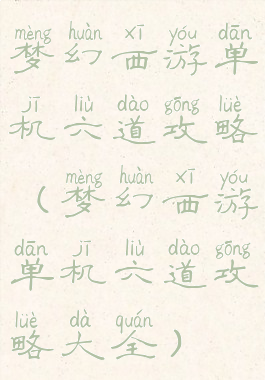 mèng huàn xī yóu dān
梦幻西游单
jī liù dào gōng lüè
机六道攻略
mèng huàn xī yóu
（梦幻西游
dān jī liù dào gōng
单机六道攻
lüè dà quán
略大全）